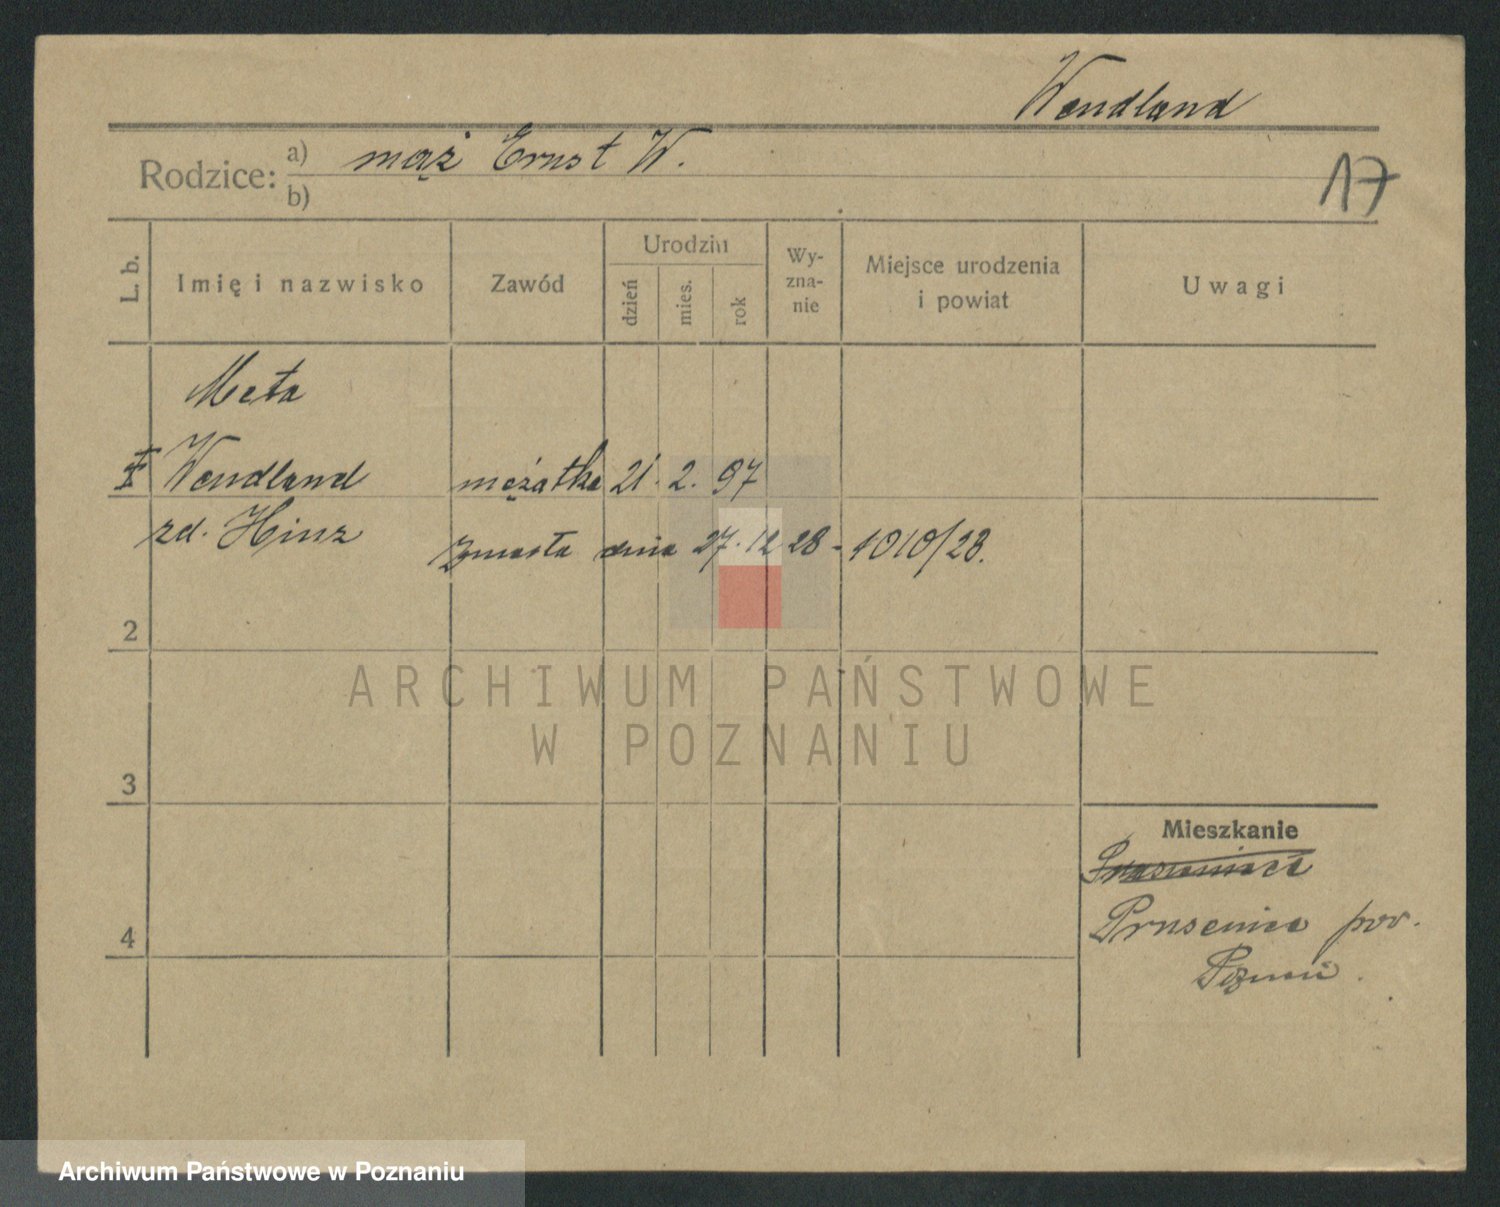 Wendland
Rodzice: a) mąż Ernst W.
b)
17
L. b.
Imię i nazwisko
Zawód
Urodzin
dzień
mies.
rok
Wy-
zna-
nie
Miejsce urodzenia
i powiat
Uwagi
Meta
Wendland mężatka 21. 2. 97
zd. Hinz
Zmarła dnia 27.12 28 - 1010/28.
2
3
4
ARCHIWUM PAŃSTWOWE
W POZNANIU
Mieszkanie
Prusewice pow.
Poznań.
Archiwum Państwowe w Poznaniu